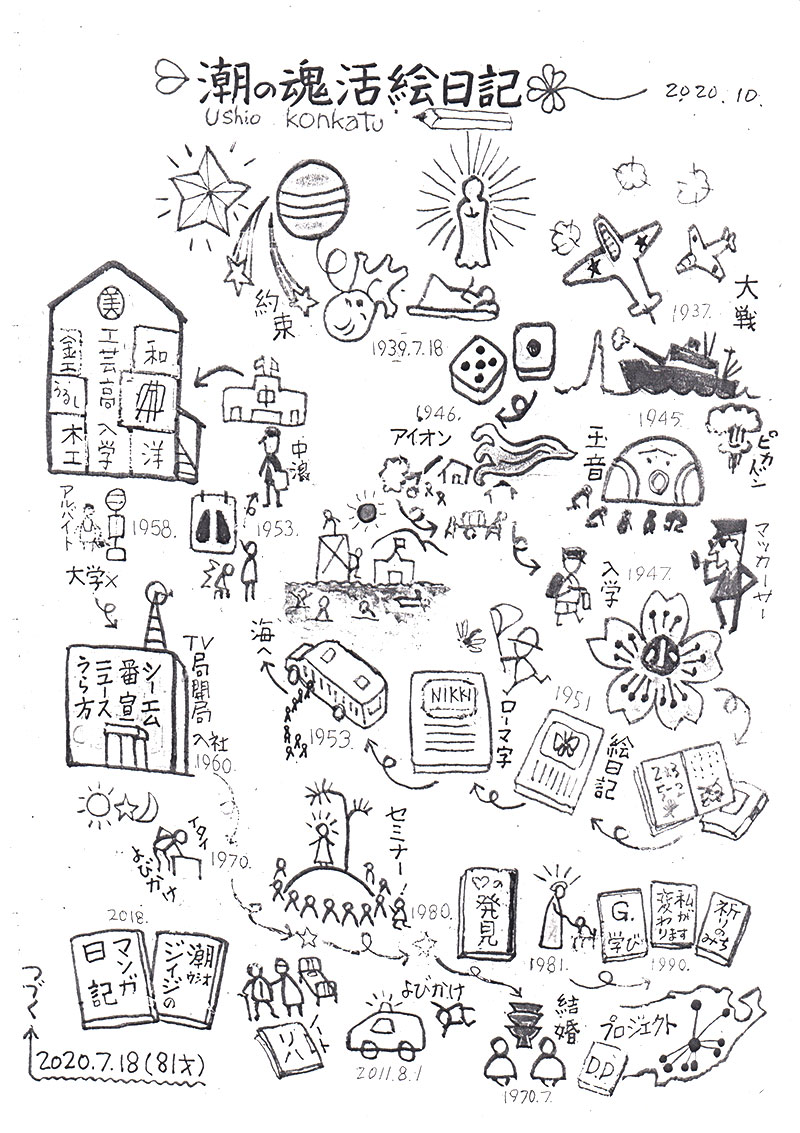 潮の魂活絵日記
Ushio konkatu
2020.10.
約束
1939.7.18
1937.
大戦
1945.
ピカドン
玉音
1946.
アイオン
マッカーサー
1947.
入学
小
絵日記
1951
ローマ字
NIKKI
海へ
1953.
中
中浪
1953.
美
工芸高入学
和
洋
金工
うるし
木工
アルバイト
1958.
大学×
TV局開局
入社
1960.
シーエム
番宣
ニュース
うら方
イタイ
よびかけ
1970.
セミナー!
1980.
の発見
1981.
G.
学び
私が変わります
祈りのみち
1990.
プロジェクト
D.D
結婚
1970.7.
よびかけ
2011.8.1
リハ
2018.
潮ウシオ
ジイジの
マンガ
日記
つづく
2020.7.18(81才)